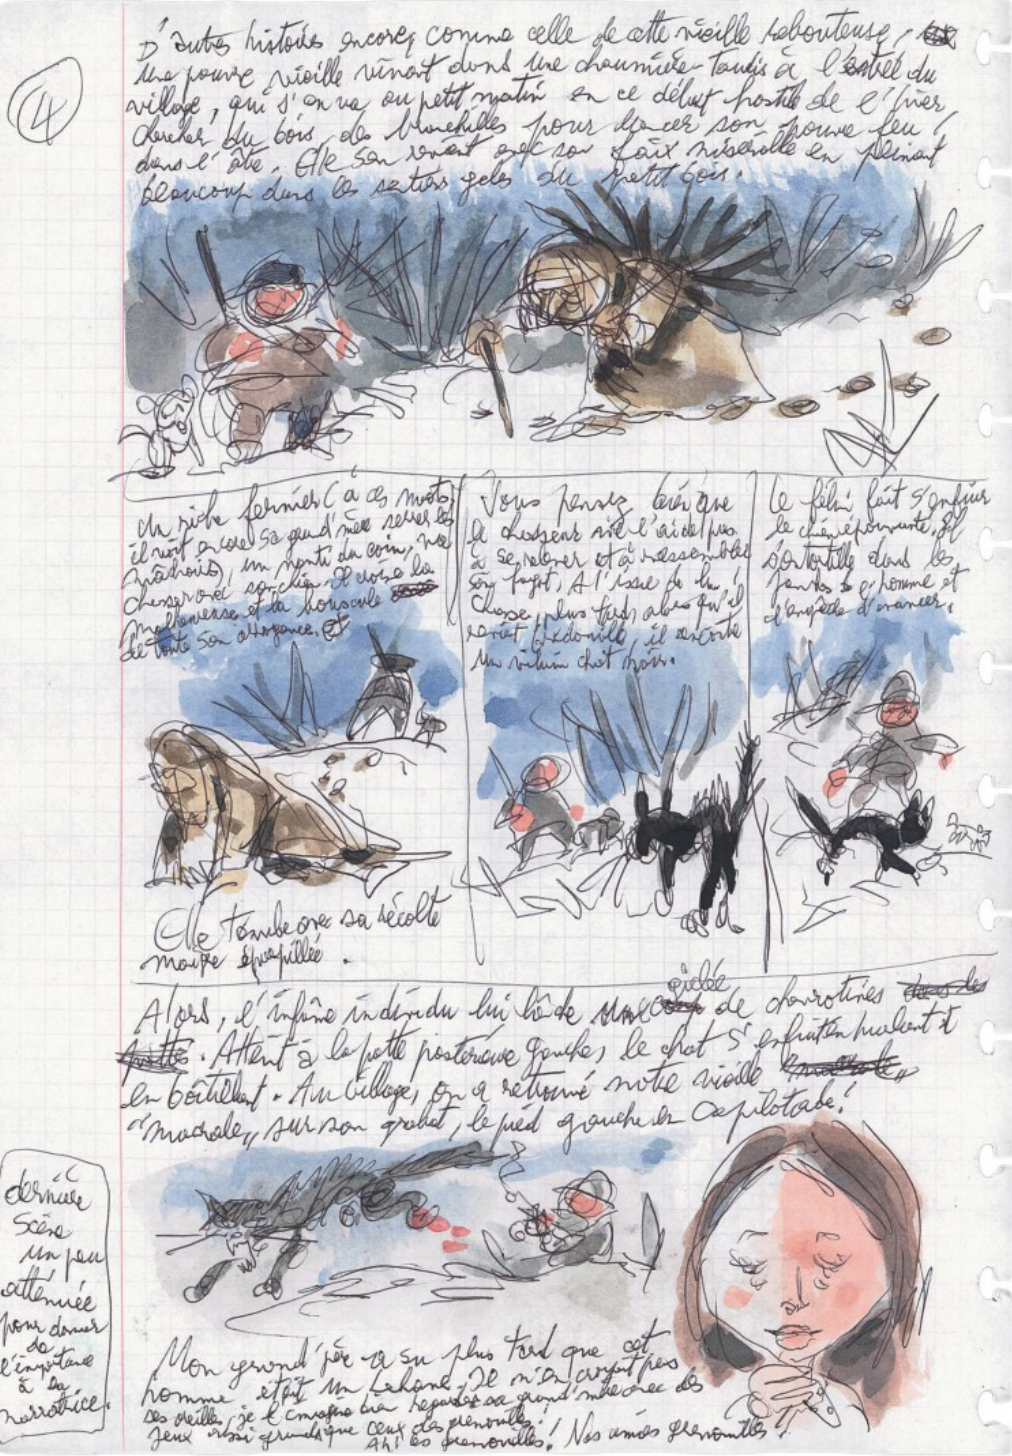 4
D'autres histoires encore, comme celle de cette vieille rebouteuse,
une pauvre vieille vivant dans une chaumière-taudis à l'entrée du
village, qui s'en va au petit matin en ce début hostile de l'hiver
chercher du bois, des branchilles pour lancer son pauvre feu
dans l'âtre. Elle s'en revient avec son faix misérable en peinant
beaucoup dans les sentiers gelés du petit bois.
Un riche fermier (à ces mots
il voit encore sa grand'mère serrer les
mâchoires), un nanti du coin,
chasse avec son chien. Il croise la
malheureuse et la bouscule
de toute son arrogance. et
Elle tombe avec sa récolte
maigre éparpillée.
Vous pensez bien que
le chasseur ne l'aide pas
à se relever et à rassembler
son fagot. A l'issue de la
chasse, plus tard, alors qu'il
revient bredouille, il rencontre
un vilain chat noir.
Le félin fait s'enfuir
le chien épouvanté, il
s'entortille dans les
jambes de l'homme et
l'empêche d'avancer.
Alors, l'infâme individu lui lâche une giclée de chevrotines
. Atteint à la patte postérieure gauche, le chat s'enfuit en hurlant et
en boîtillant. Au village, on a retrouvé notre vieille
"macrale" sur son grabat, le pied gauche en capilotade!
dernière
scène
un peu
atténuée
pour donner
de
l'importance
à la
narratrice.
Mon grand'père a su plus tard que cet
homme était un Lehane. Il n'en croyait pas
ses oreilles, je l'imagine bien regarder sa grand'mère avec des
yeux aussi grands que ceux des grenouilles!
Ah! les grenouilles! Nos amies grenouilles!